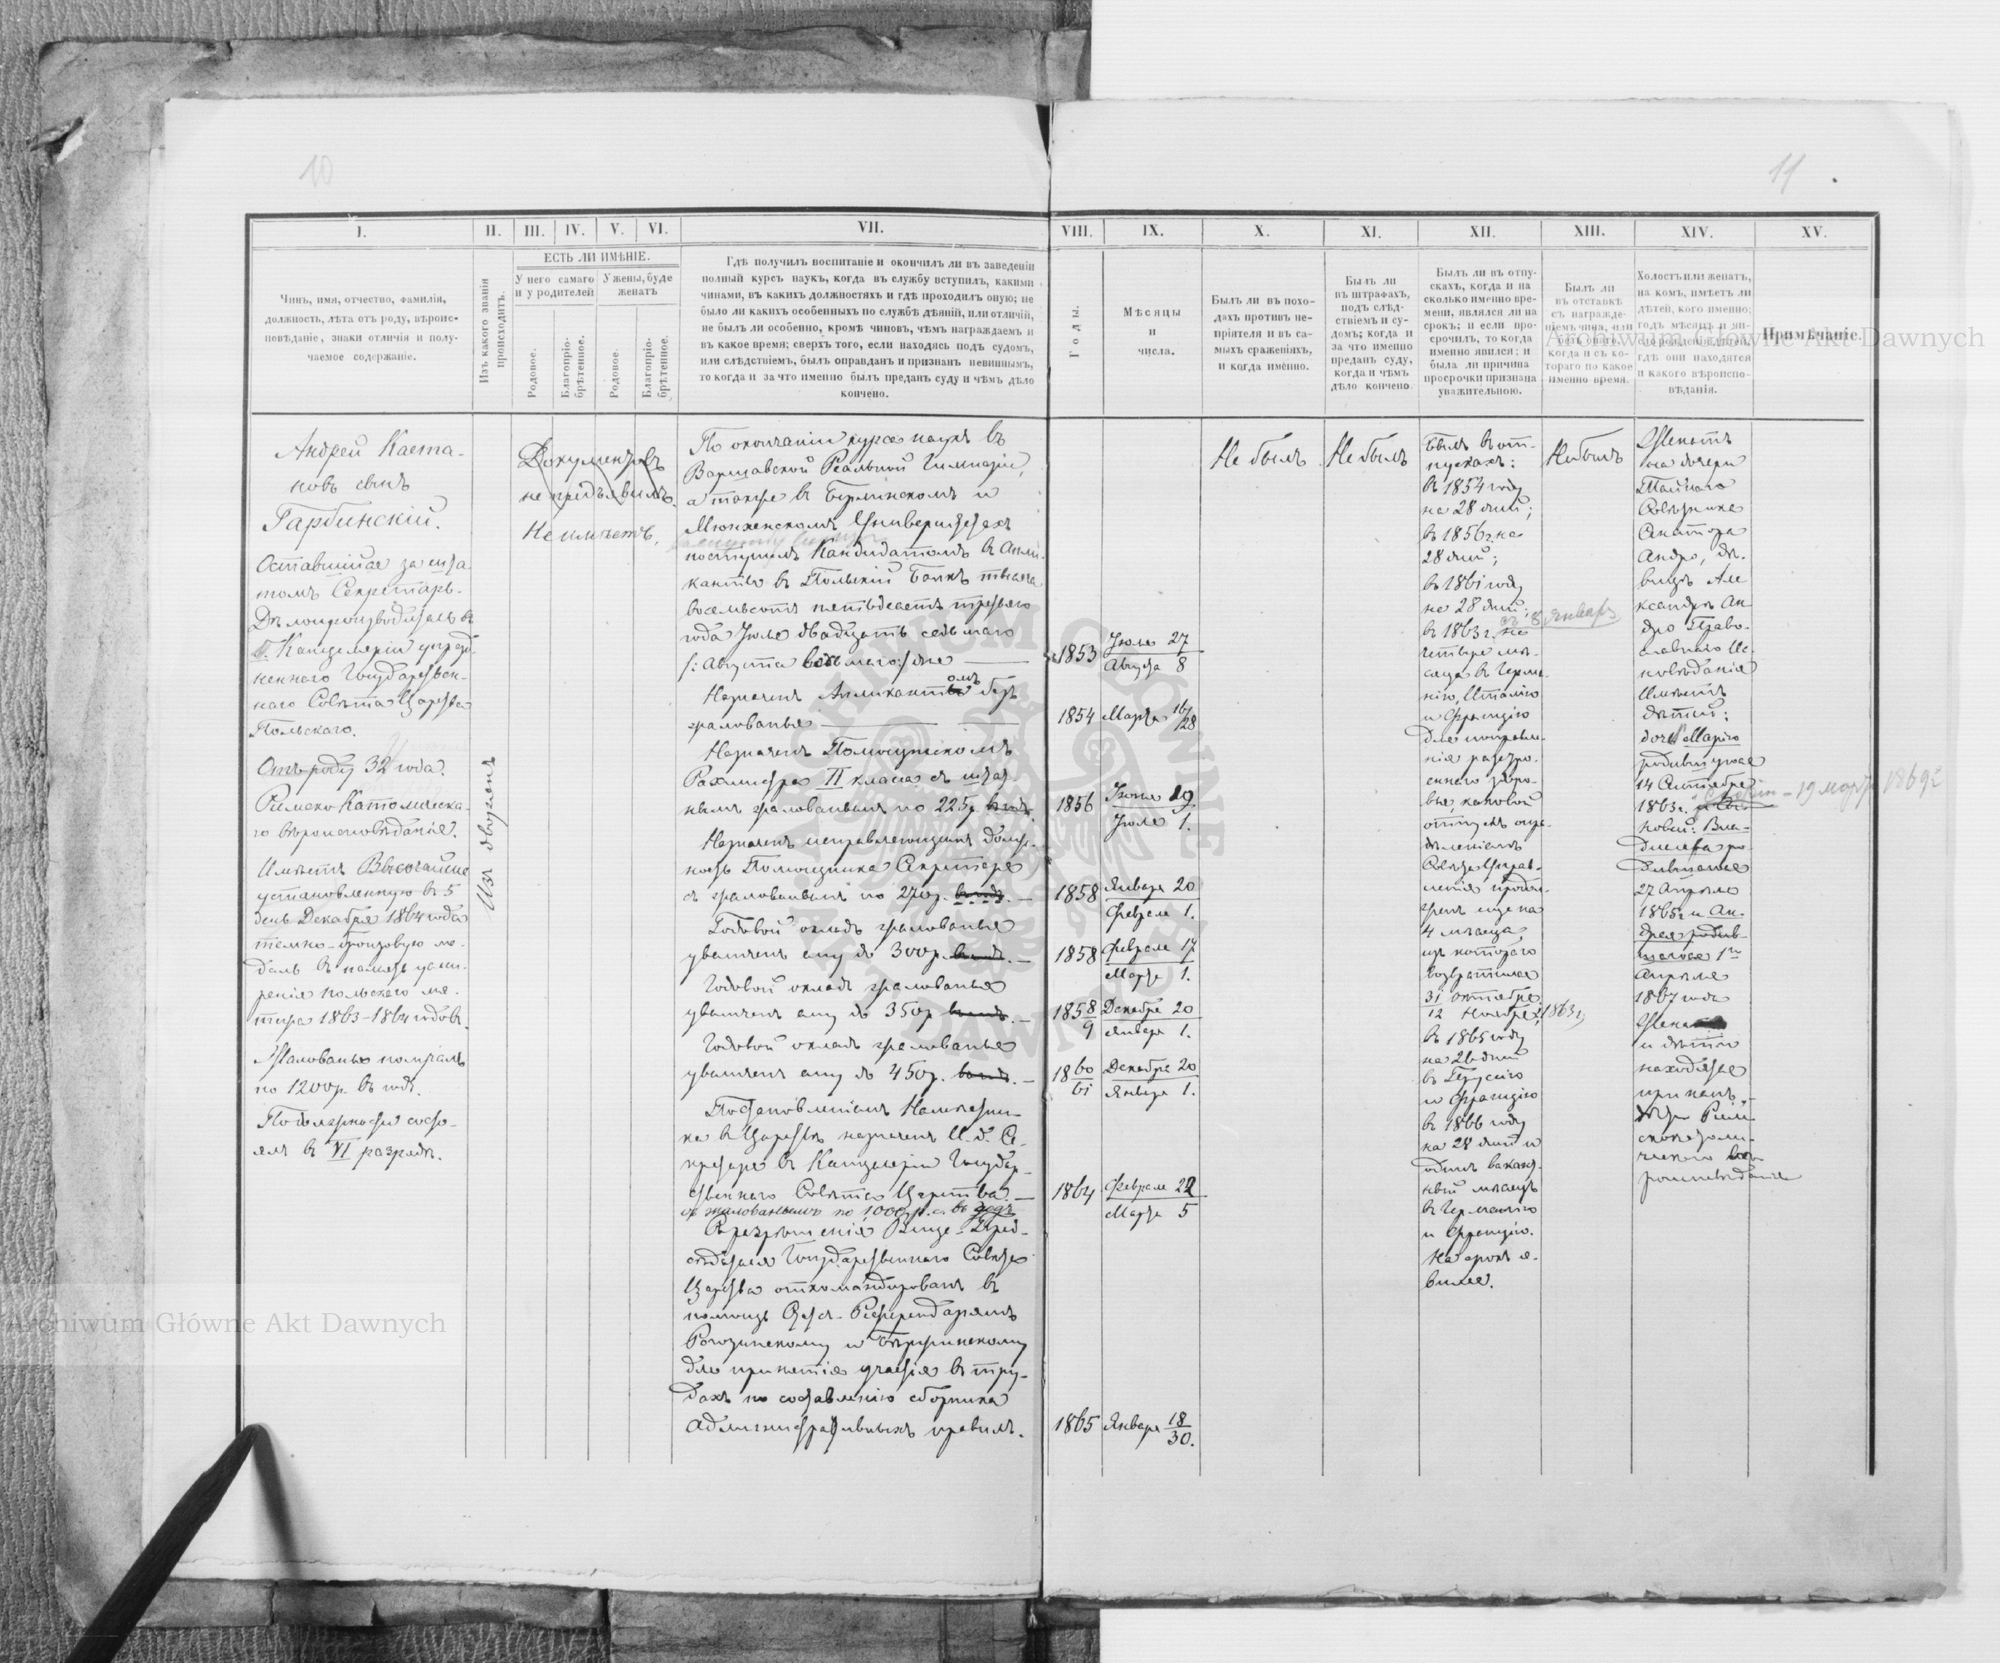 10
11
I.
II.
III.
IV.
V.
VI.
VII.
VIII.
IX.
X.
XI.
XII.
XIII.
XIV.
XV.
Чинъ, имя, отчество, фамилія,
должность, лѣта отъ роду, вѣроис-
повѣданіе, знаки отличія и полу-
чаемое содержаніе.
Изъ какого званія
происходитъ.
ЕСТЬ ЛИ ИМѢНІЕ.
У него самаго
и у родителей
У жены, буде
женатъ
Родовое.
Благопріо-
брѣтенное.
Родовое.
Благопріо-
брѣтенное.
Гдѣ получилъ воспитаніе и окончилъ ли въ заведеніи
полный курсъ наукъ, когда въ службу вступилъ, какими
чинами, въ какихъ должностяхъ и гдѣ проходилъ оную; не
было ли какихъ особенныхъ по службѣ дѣяній, или отличій,
не былъ ли особенно, кромѣ чиновъ, чѣмъ награждаемъ и
въ какое время; сверхъ того, если находясь подъ судомъ,
или слѣдствіемъ, былъ оправданъ и признанъ невиннымъ,
то когда и за что именно былъ преданъ суду и чѣмъ дѣло
кончено.
Годы.
Мѣсяцы
и
числа.
Былъ ли въ похо-
дахъ противъ не-
пріятеля и въ са-
мыхъ сраженіяхъ,
и когда именно.
Былъ ли
въ штрафахъ,
подъ слѣд-
ствіемъ и су-
домъ; когда и
за что именно
преданъ суду,
когда и чѣмъ
дѣло кончено.
Былъ ли въ отпу-
скахъ, когда и на
сколько именно вре-
мени, являлся ли на
срокъ; и если про-
срочилъ, то когда
именно явился; и
была ли причина
просрочки признана
уважительною.
Былъ ли
въ отставкѣ
съ награжде-
ніемъ чина, или
безъ онаго,
когда и съ ко-
тораго по какое
именно время.
Холостъ или женатъ,
на комъ, имѣетъ ли
дѣтей, кого именно;
годъ мѣсяцъ и чи-
сло рожденія дѣтей,
гдѣ они находятся
и какого вѣроиспо-
вѣданія.
Примѣчаніе.
Андрей Каета-
новъ сынъ
Гарбинскій.
Оставшійся за шта-
томъ Секретарь-
Дѣлопроизводитель въ
б. Канцеляріи упразд-
неннаго Государствен-
наго Совѣта Царства
Польскаго.
Отъ роду 32 года.
Римско Католическа-
го вѣроисповѣданія.
Имѣетъ Высочайше
установленную въ 5
день Декабря 1864 года
темно-бронзовую ме-
даль въ память усми-
ренія польскаго мя-
тежа 1863-1864 годовъ.
Жалованья получалъ
по 1200 р. въ годъ.
По должности состо-
ялъ въ VI разрядѣ.
Изъ дворянъ
Документовъ
не предъявилъ.
Не имѣетъ.
По окончаніи курса наукъ въ
Варшавской Реальной Гимназіи,
а также въ Берлинскомъ и
Мюнхенскомъ Университетахъ
поступилъ Кандидатомъ въ Аппли-
канты въ Польскій Банкъ тысяча
восемьсотъ пятьдесятъ третьяго
года Іюля двадцать седьмаго
/: Августа восьмаго:/ дня
1853 Іюля 27
Августа 8
Назначенъ Аппликантомъ безъ
жалованья
1854 Марта 16/28
Назначенъ Помощникомъ
Рахмистра II класса съ штат-
нымъ жалованьемъ по 225 р. въ годъ.
1856 Іюня 19
Іюля 1.
Назначенъ исправляющимъ долж-
ность Помощника Секретаря
съ жалованьемъ по 270 р. въ годъ. —
1858 Января 20
Февраля 1.
Годовой окладъ жалованья
увеличенъ ему до 300 р. въ годъ. —
1858 Февраля 17
Марта 1.
Годовой окладъ жалованья
увеличенъ ему до 350 р. въ годъ. —
1858/9 Декабря 20
Января 1.
Годовой окладъ жалованья
увеличенъ ему до 450 р. въ годъ. —
1860/61 Декабря 20
Января 1.
Постановленіемъ Намѣстни-
ка въ Царствѣ назначенъ И. д. Се-
кретаря въ Канцеляріи Государ-
ственнаго Совѣта Царства —
съ жалованьемъ по 1000 р. с. въ годъ
1864 Февраля 22
Марта 5
Съ разрѣшенія Вице-Пред-
сѣдателя Государственнаго Совѣта
Царства откомандированъ въ
помощь Статс-Референдарямъ
для принятія участія въ тру-
дахъ по составленію сборника
Административныхъ правилъ.
1865 Января 18/30.
Не былъ
Не былъ
Былъ въ от-
пускахъ:
въ 1854 году
на 28 дней;
въ 1856 г. на
28 дней;
въ 1861 году
на 28 дней;
въ 1863 г. на
съ 8 января
четыре мѣ-
сяца въ Герма-
нію, Италію
и Францію
для поправле-
нія разстро-
еннаго здоро-
вья, каковой
отпускъ опре-
дѣленіемъ
Совѣта Управ-
ленія продол-
женъ еще на
4 мѣсяца,
изъ котораго
возвратился
31 октября
12 Ноября 1863 г.
въ 1865 году
на 28 дней
и Францію
въ 1866 году
на 28 дней и
одинъ вакант-
ный мѣсяцъ
въ Германію
и Францію.
На срокъ я-
вился.
Не былъ
Женатъ
на дочери
Тайнаго
Совѣтника
Сенатора
Андро, дѣ-
вицѣ Але-
ксандрѣ Ан-
дро Право-
славнаго Ис-
повѣданія
Имѣетъ
дѣтей:
дочь Марію
родившуюся
14 Сентября
1863 г.
новей: Вла-
димера ро-
дившагося
27 Апрѣля
1865 г. и Ан-
дрея родив-
шагося 1го
Апрѣля
1867 года
Жена
и дѣти
находятся
при немъ.
Дѣти Рим-
скокатоли-
ческаго вѣ-
роисповѣданія
19 марта 1869 г.
Archiwum Główne Akt Dawnych
Archiwum Główne Akt Dawnych
ARCHIWUM GŁÓWNE AKT DAWNYCH